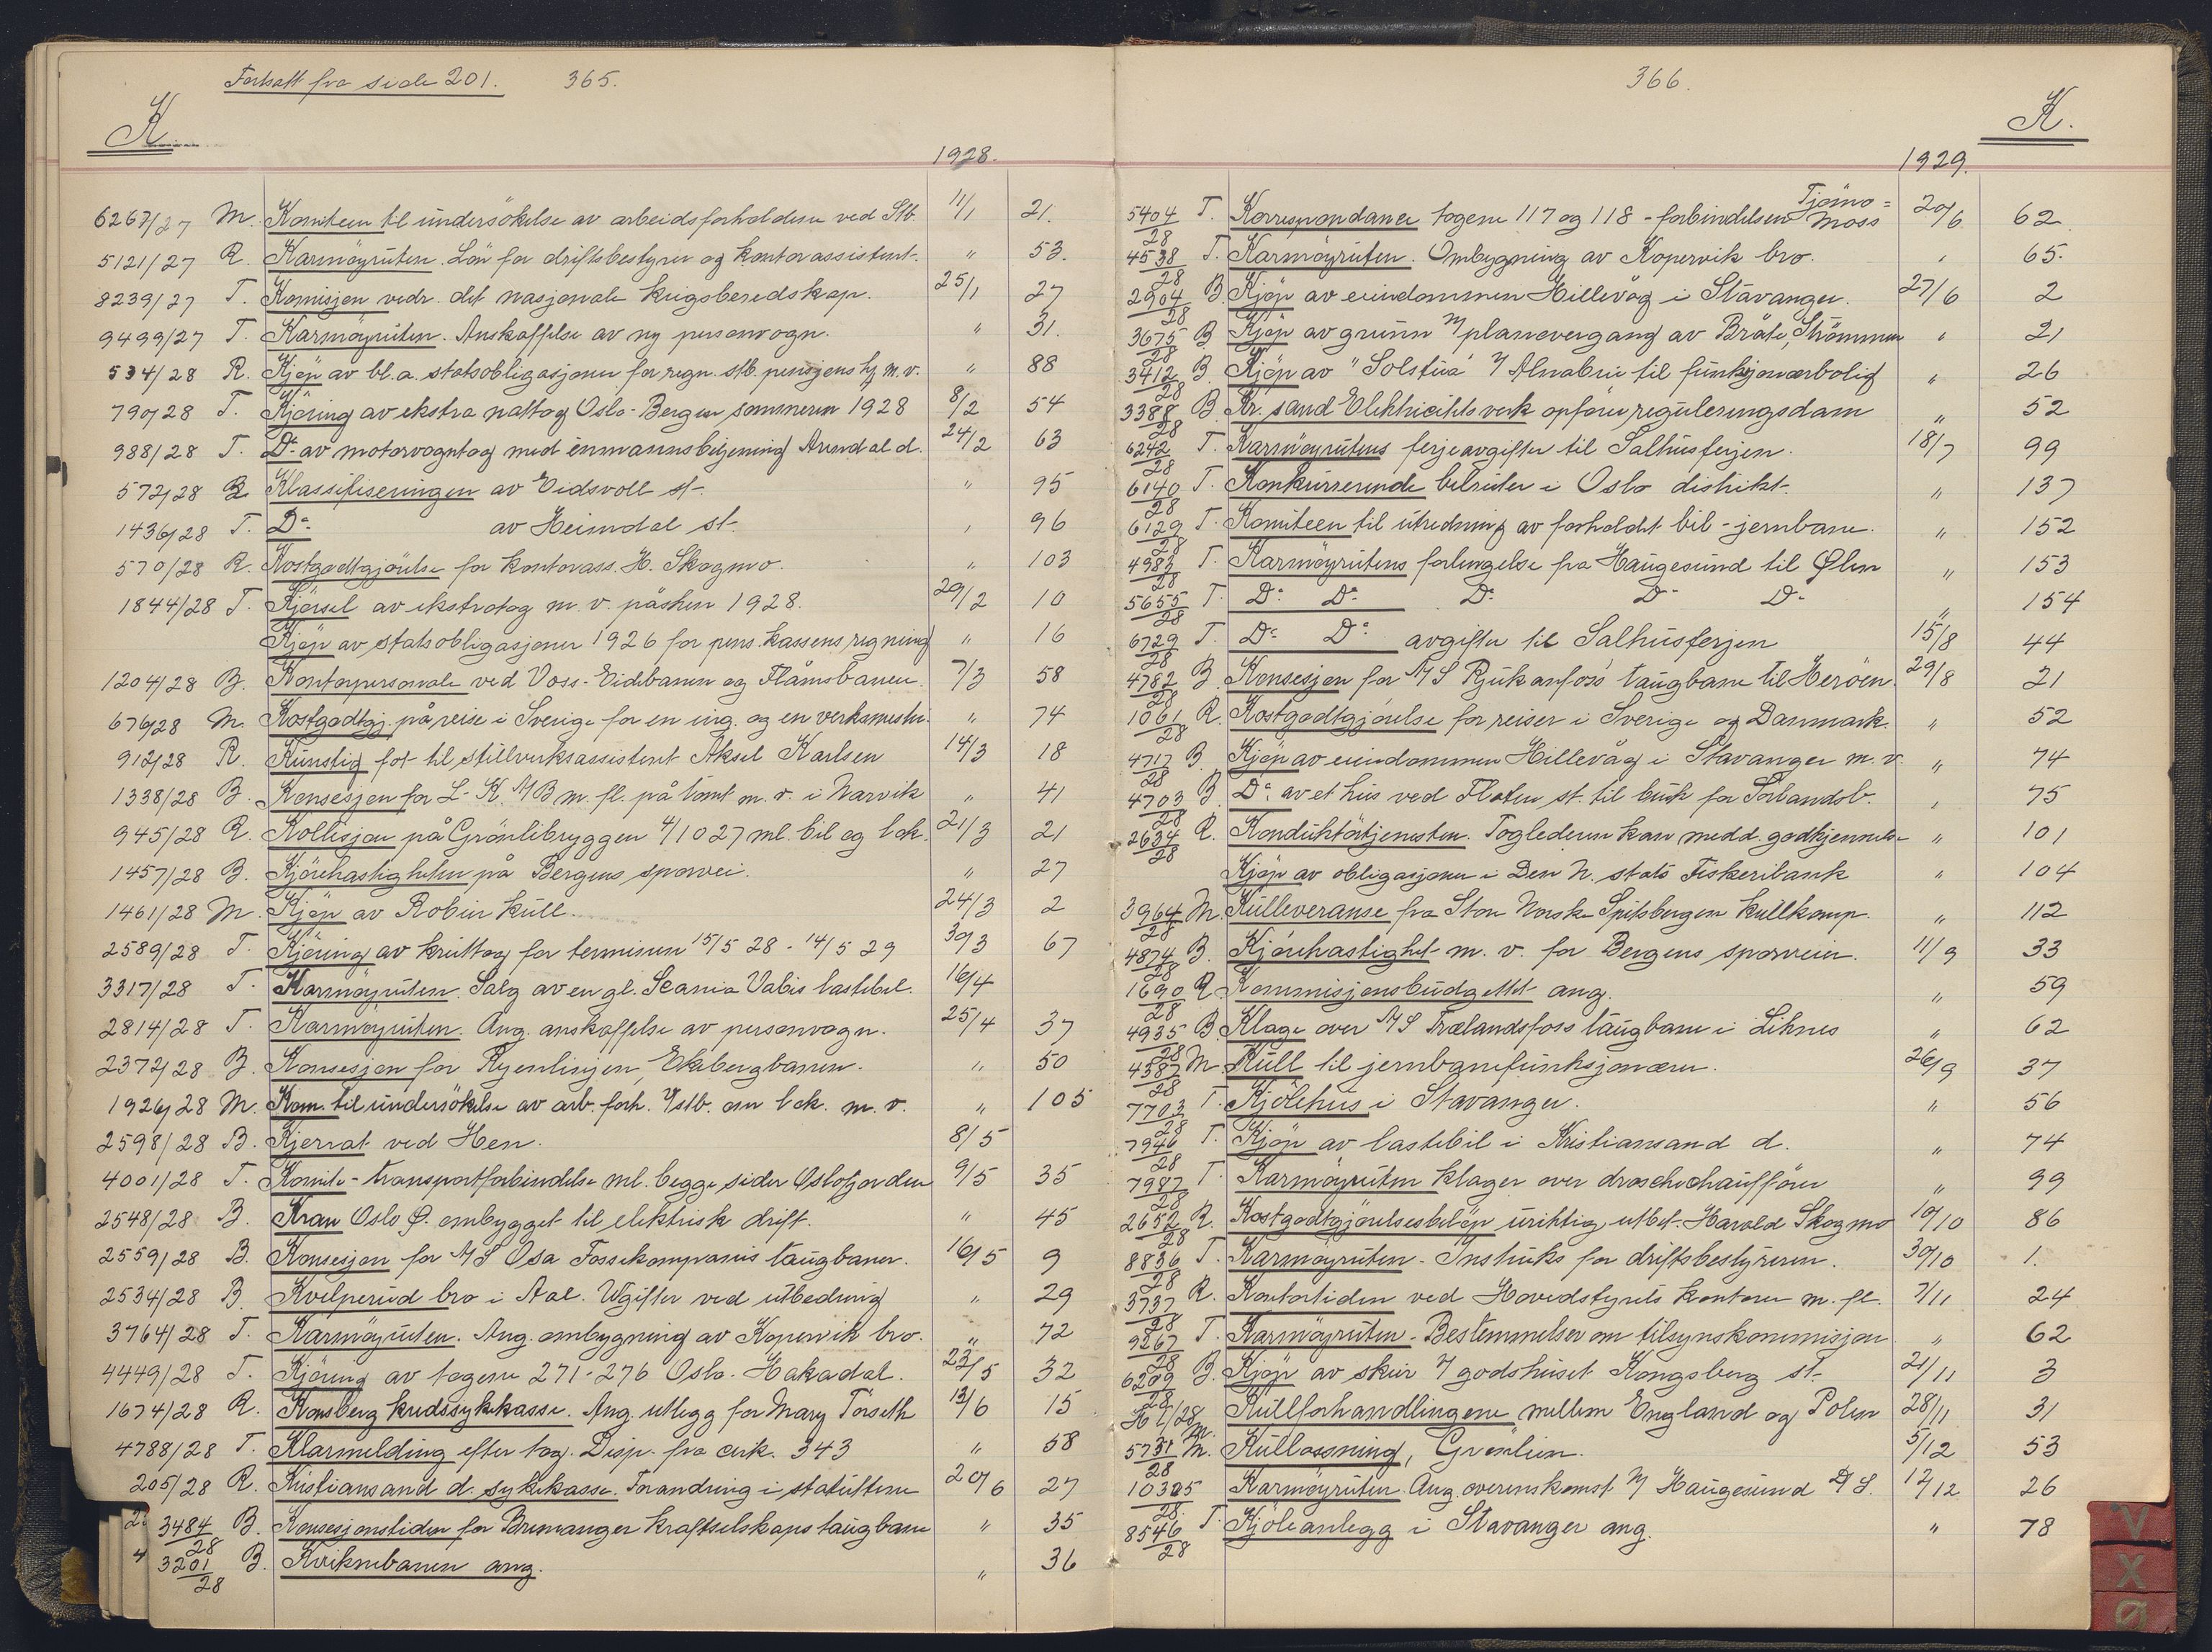 Fortsatt fra side 201. 365.
K.
1928.
6267/27 M. Komiteen til undersökelse av arbeidsforholdene ved Stb. 11/1 21.
5121/27 R. Karmöyruten. Lön for driftsbestyrer og kontorassistent. " 53.
8239/27 T. Komisjon vedr. det nasjonale krigsberedskap. 25/1 27
9499/27 T. Karmöyruten. Anskaffelse av ny personvogn. " 31.
534/28 R. Kjöp av bl.a. statsobligasjoner for regn. stb. pensjons hj. m.v. " 88
790/28 T. Kjöring av ekstra nattog Oslo-Bergen sommeren 1928 8/2 54
988/28 T. Do av motorvogntog med enmannsbetjening Arendal d. 24/2 63
572/28 R. Klassifiseringen av Eidsvoll st. " 95
1436/28 T. Do av Heimdal st. " 96
570/28 R. Kostgodtgjörelse for kontorass. H. Skogmo. " 103
1844/28 T. Kjörsel av ekstratog m.v. påsken 1928. 29/2 10
Kjöp av statsobligasjoner 1926 for pens. kassens regning " 16
1204/28 B. Kontorpersonale ved Voss-Eidebanen og Flåmsbanen. 7/3 58
676/28 M. Kostgodtgj. på reise i Sverige for en ing. og en verksmester. " 74
912/28 R. Kunstig fot til stillverksassistent Aksel Karlsen 14/3 18
1338/28 B. Konsesjon for L-K. A/B m.fl. på tomt m.v. i Narvik " 41
945/28 R. Kollisjon på Grönlibryggen 4/10 27 ml. bil og lok. 21/3 21
1457/28 B. Kjörehastigheten på Bergens sporvei. " 27
1461/28 M. Kjöp av Robin kull. 24/3 2
2589/28 T. Kjöring av kruttog for terminen 15/5 28 - 14/5 29 30/3 67
3317/28 T. Karmöyruten. Salg av en gl. Scania Vabis lastebil. 16/4
2814/28 T. Karmöyruten. Ang. anskaffelse av personvogn. 25/4 37
2372/28 B. Konsesjon for Ryenlinjen, Ekebergbanen. " 50
1926/28 M. Kom. til undersökelse av arb. forh. v/stb. om lok. m.v. " 105
2598/28 B. Kjerrat ved Hen. 8/5
4001/28 T. Komite - transportforbindelse ml. begge sider Oslofjorden 9/5 35
2548/28 B. Kran Oslo Ø. ombygget til elektrisk drift. " 45
2559/28 B. Konsesjon for A/S Osa Fossekompanis taugbaner. 16/5 9
2534/28 B. Kvelprud bro i Aal. Utgifter ved utbedring " 29
3764/28 T. Karmöyruten. Ang. ombygning av Kopervik bro. " 72
4449/28 T. Kjöring av togene 271-276 Oslo-Hakadal. 23/5 32
1674/28 R. Konsberg kredssykekasse. Ang. utlegg for Mary Törseth 13/6 15
4788/28 T. Klarmelding efter tog. Disp. fra cirk. 343 " 58
205/28 R. Kristiansand d. sykekasse. Forandring i statuttene 20/6 27
3484/28 B. Konsesjonstiden for Bremanger kraftselskaps taugbane " 35
3201/28 B. Kviknebanen ang. " 36
366.
K.
1929.
5404/28 T. Korrespondanse togene 117 og 118 - forbindelsen Tjömö=Moss 20/6 62
4538/28 T. Karmöyruten. Ombygning av Kopervik bro. " 65.
2904/28 B. Kjöp av eiendommen Hillevåg i Stavanger. 27/6 2
3675/28 B. Kjöp av grunn m/planovergang av Bråte, Strömmen " 21
3412/28 B. Kjöp av "Solstua" v/ Alnabru til funksjonærbolig " 26
3388/28 B. Kr.sand Elektricitetsverk opförer reguleringsdam " 52
6242/28 T. Karmöyrutens ferjeavgifter til Salhusferjen. 18/7 99
6140/28 T. Konkurrerende bilruter i Oslo distrikt. " 137
6129/28 T. Komiteen til utredning av forholdet bil - jernbane. " 152
4983/28 T. Karmöyrutens forlengelse fra Haugesund til Ølen " 153
5655/28 T. Do Do Do Do Do " 154
6729/28 T. Do Do avgifter til Salhusferjen 15/8 44
4782/28 B. Konsesjon for A/S Rjukanfoss taugbane til Heröen. 29/8 21
1061/28 R. Kostgodtgjörelse for reiser i Sverige og Danmark. " 52
4717/28 B. Kjöp av eiendommen Hillevåg i Stavanger m.v. " 74
4703/28 B. Do av et hus ved Flaten st. til bruk for Sörlandsb. " 75
2634/28 R. Konduktörtjenesten. Toglederen kan medd. godkjennelse " 101
Kjöp av obligasjoner i Den N. stats Fiskeribank " 104
3964/28 M. Kulleveranse fra Store Norske Spitsbergen kullkomp. " 112
4874/28 B. Kjörehastighet m.v. for Bergens sporveier. 11/9 33
1690/28 R. Kommisjonsbudgettet ang. " 59
4935/28 B. Klage over A/S Trælandsfoss taugbane i Liknes " 62
4387/28 M. Kull til jernbanefunksjonærer. 26/9 37
7703/28 T. Kjölehus i Stavanger. " 56
7946/28 T. Kjöp av lastebil i Kristiansand d. " 74
7987/28 T. Karmöyruten klager over droschechauffören " 99
2652/28 R. Kostgodtgjörelsesbelöp uriktig utbet. Harald Skogmo 10/10 86
8836/28 T. Karmöyruten - Instruks for driftsbestyreren. 30/10 1.
3737/28 R. Kontortiden ved Hovedstyrets kontorer m.fl. 7/11 24
9267/28 T. Karmöyruten - Bestemmelser om tilsynskommisjon " 62
6209/28 B. Kjöp av skur v/ godshuset Kongsberg st. 21/11 3
Kullforhandlingene mellem England og Polen 28/11 31
5731/28 M. Kullossning, Grønlien. 5/12 53
10305/28 Karmöyruten. Ang. overenskomst m/ Haugesund D/S. 12/12 26
8546/28 T. Kjöleanlegg i Stavanger ang. " 78
V
X